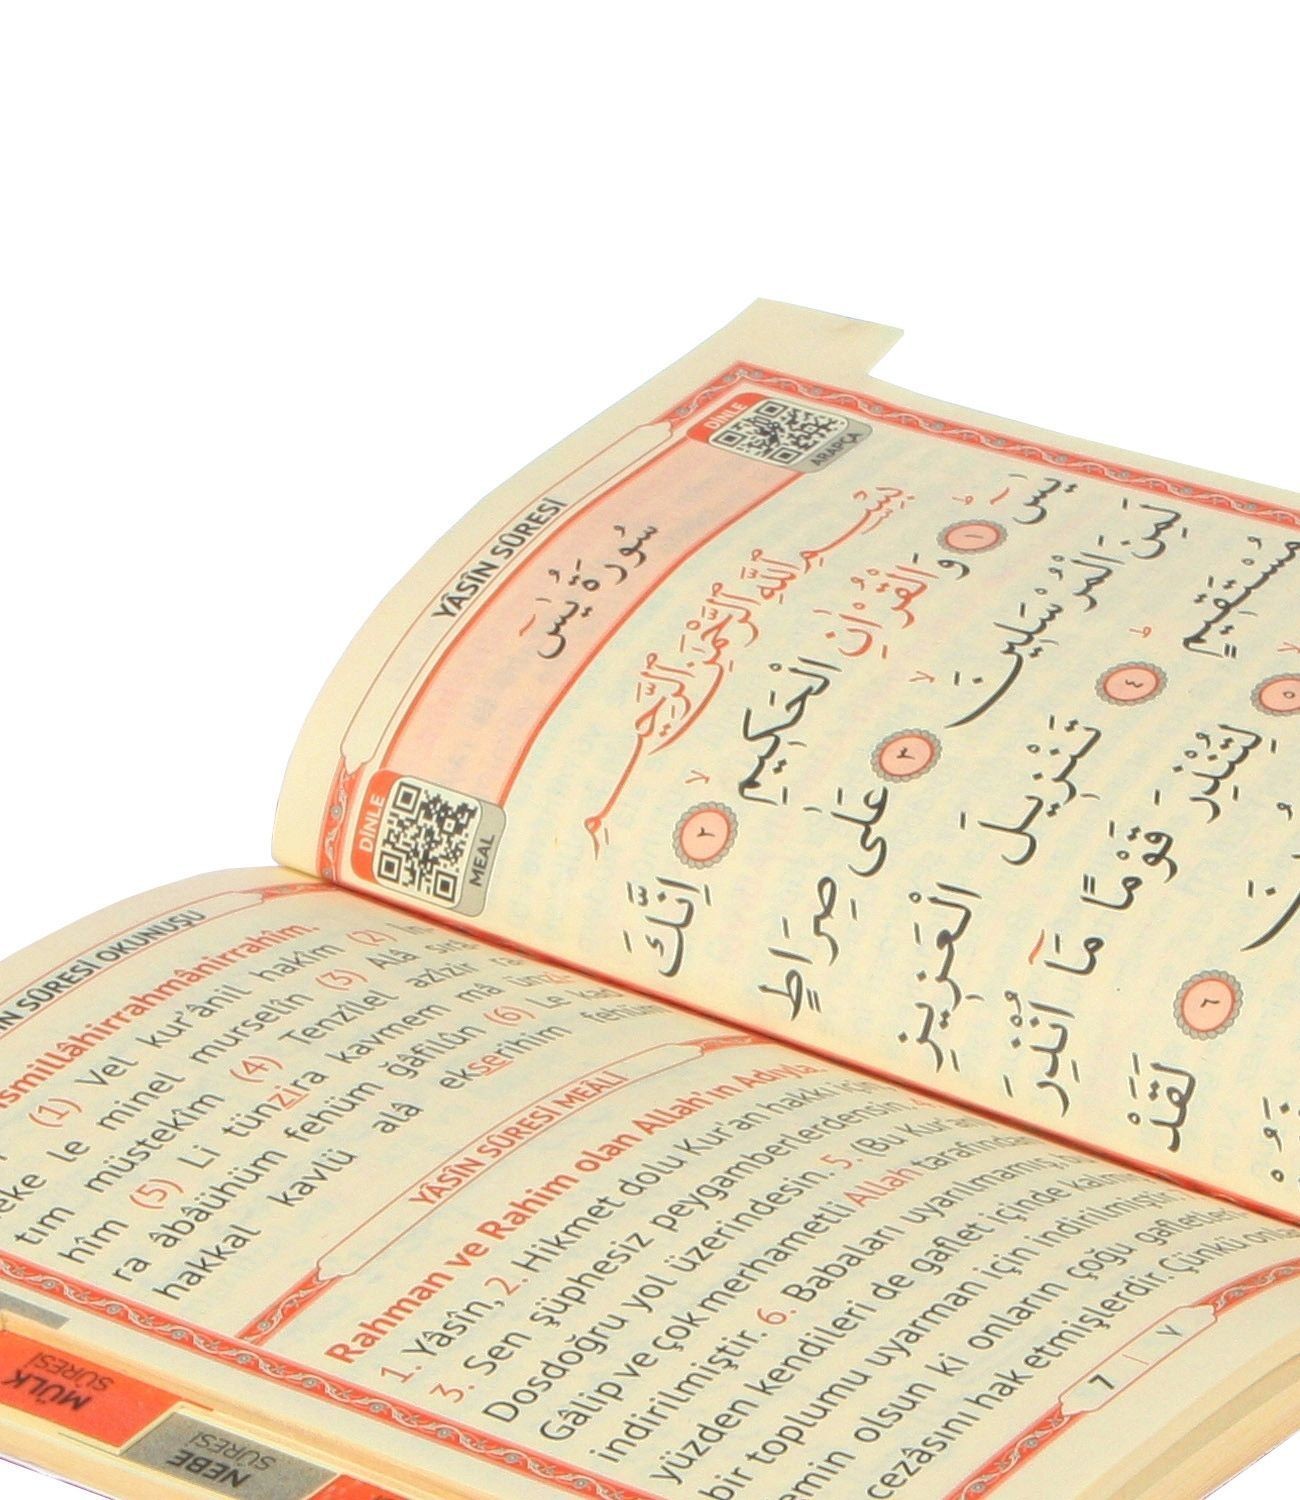 YÂSÎN SÛRESİ
DİNLE
ARAPÇA
سُورَةُ يٰسٓ
DİNLE
MEAL
بِسْمِ اللّٰهِ الرَّحْمٰنِ الرَّحِيمِ
يٰسٓ ۜ ﴿١﴾ وَالْقُرْاٰنِ الْحَكِيمِ ۙ ﴿٢﴾ اِنَّكَ
لَمِنَ الْمُرْسَلِينَ ۙ ﴿٣﴾ عَلٰى صِرَاطٍ
مُسْتَقِيمٍ ۜ ﴿٤﴾ تَنْزِيلَ الْعَزِيزِ
ۙ ﴿٥﴾ لِتُنْذِرَ قَوْمًا مَٓا اُنْذِرَ
﴿٦﴾ لَقَدْ
N SÛRESİ OKUNUŞU
ismillâhirrahmânirrahîm.
(1) Vel kur'ânil hakîm (2) İn
eke le minel murselîn (3) Alâ sırâ
tim müstekîm (4) Tenzîlel azîzir ra
hîm (5) Li tünzira kavmem mâ ün
ra âbâühüm fehüm ğâfilûn (6) Le kad
hakkal kavlü alâ ekserihim fehüm
YÂSÎN SÛRESİ MEÂLİ
Rahman ve Rahim olan Allah'ın Adıyla.
1. Yâsîn, 2. Hikmet dolu Kur'an hakkı için
3. Sen şüphesiz peygamberlerdensin.
Dosdoğru yol üzerindesin. 5. (Bu Kur'an
Gâlip ve çok merhametli Allah tarafından
indirilmiştir. 6. Babaları uyarılmamış,
yüzden kendileri de gaflet içinde
bir toplumu uyarman için indirilmiştir.
emin olsun ki onların çoğu gafletleri
cezâsını hak etmişlerdir. Çünkü
7 | ٧
MÜLK
SÛRESİ
NEBE
SÛRESİ